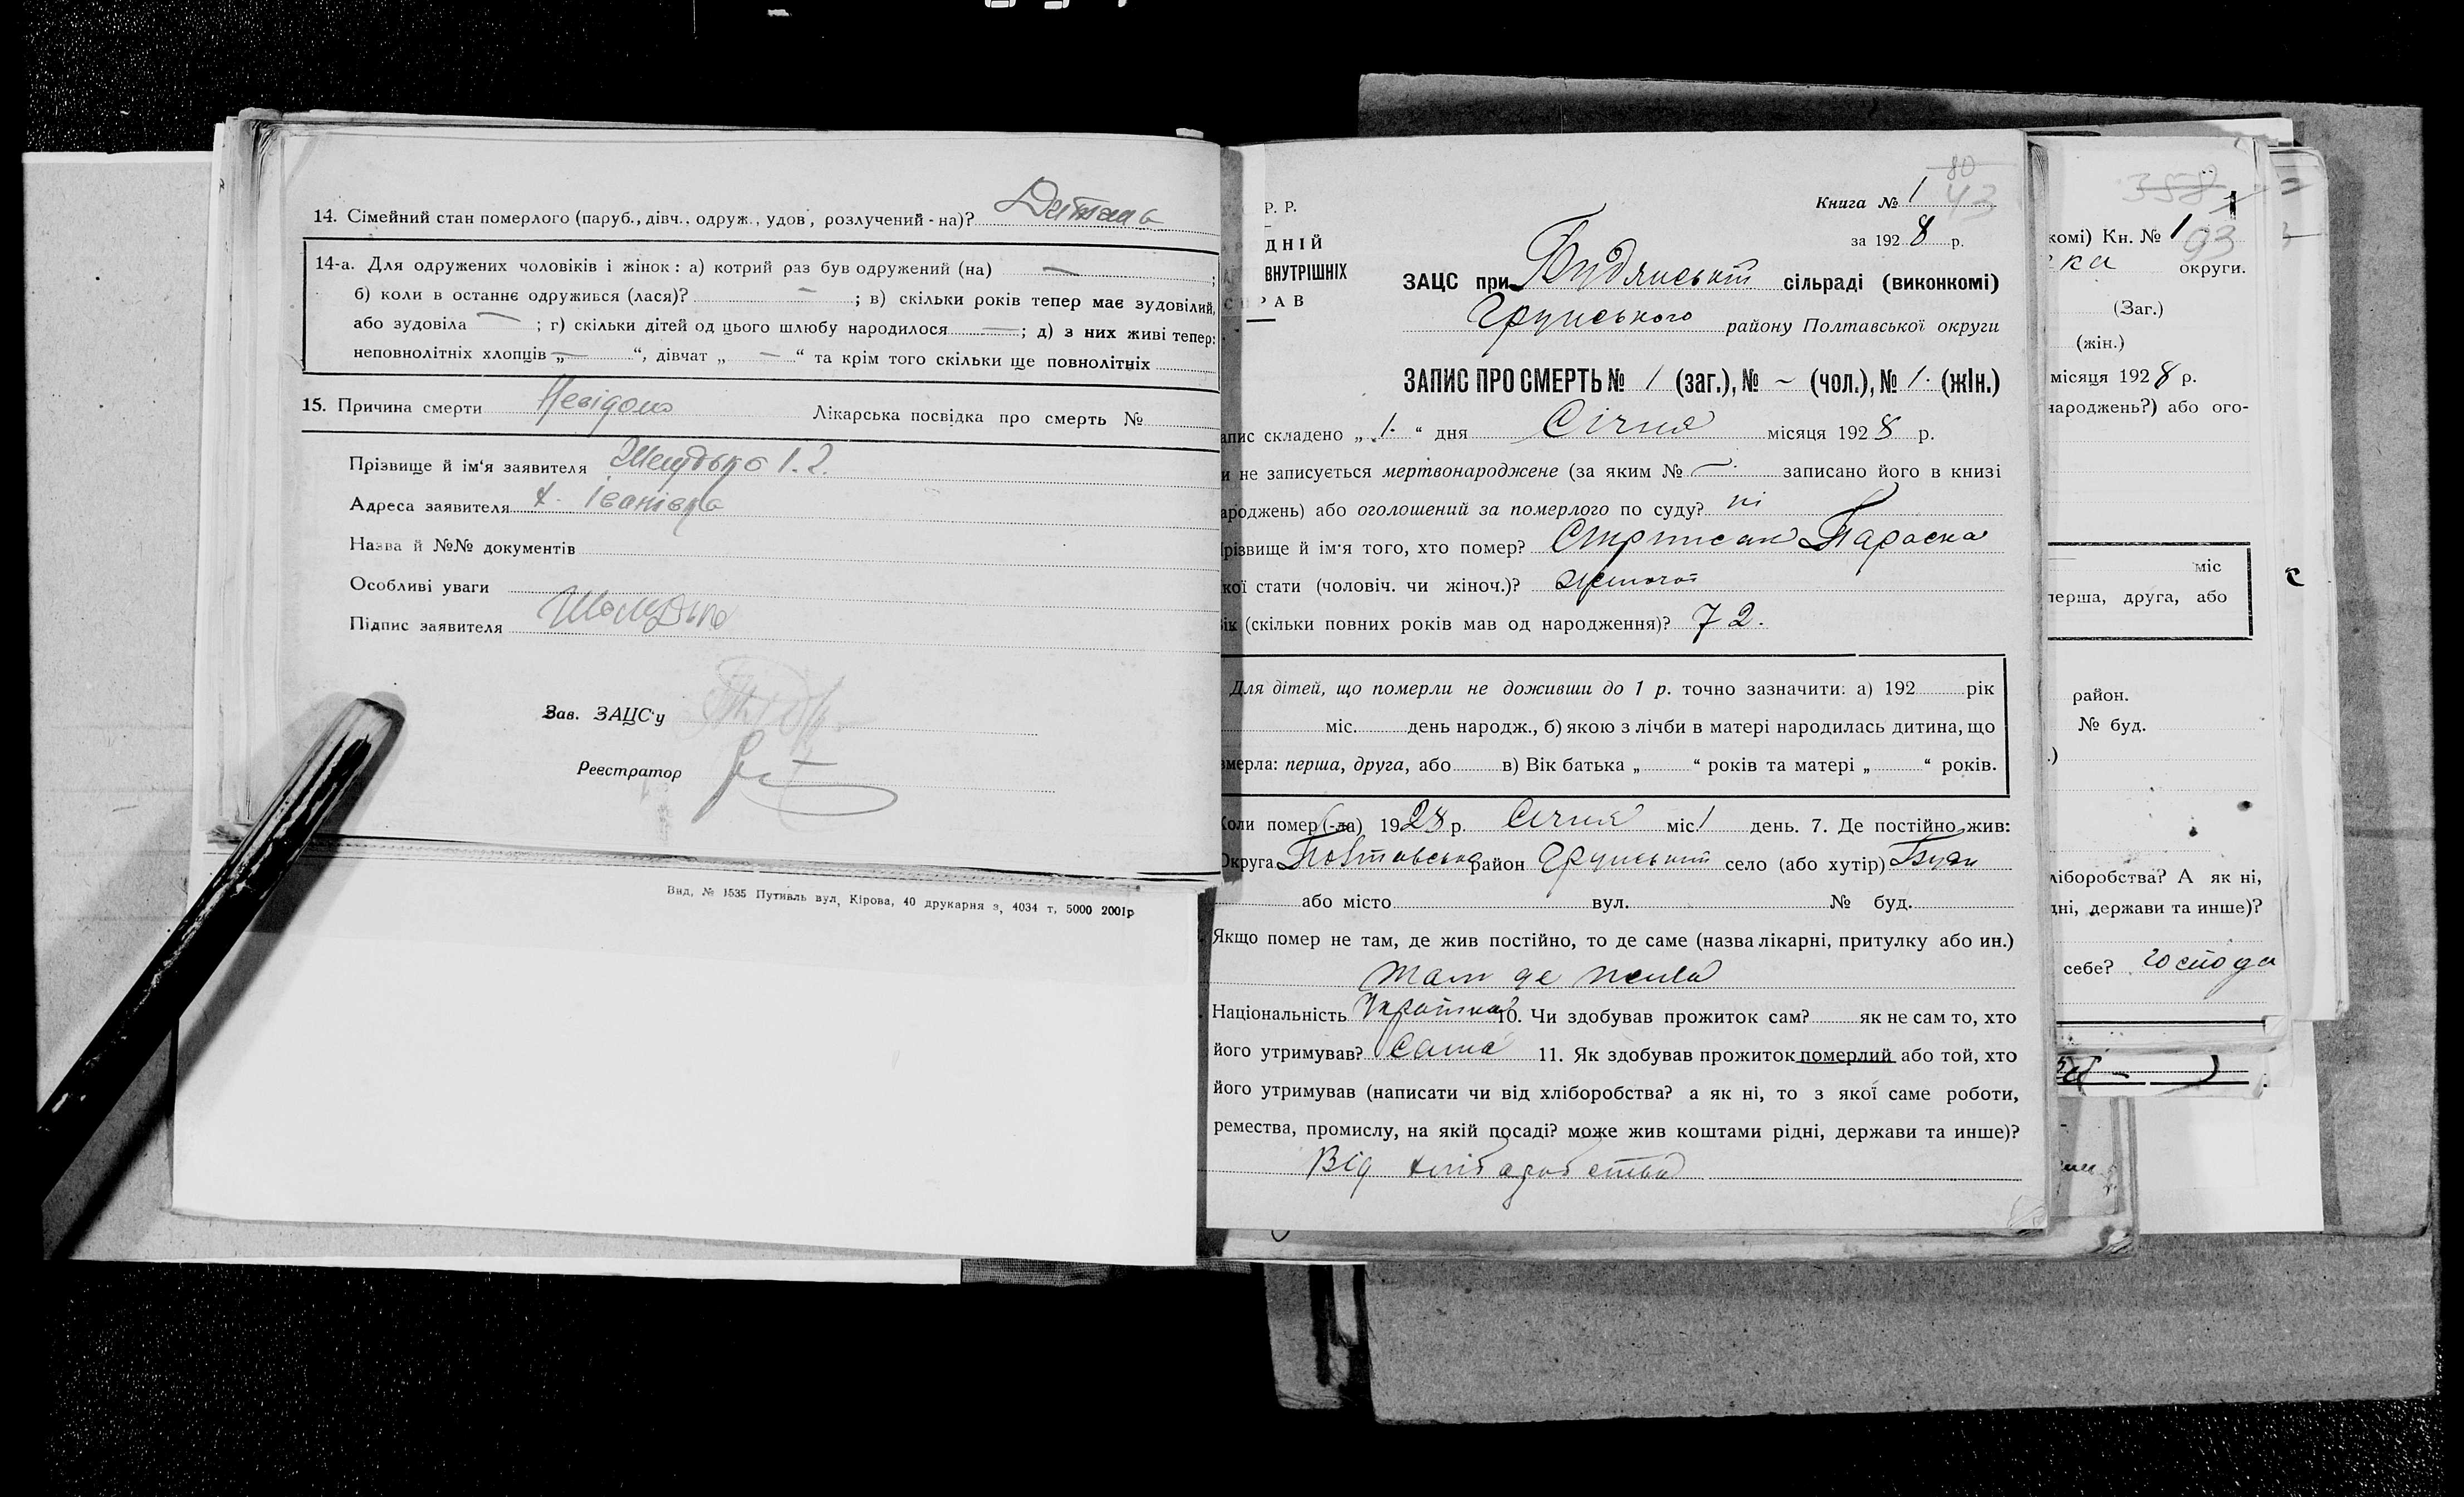 14. Сімейний стан померлого (паруб., дівч., одруж., удов, розлучений - на)? Дитина
14-а. Для одружених чоловіків і жінок: а) котрий раз був одружений (на) — ;
б) коли в останнє одружився (лася)? — ; в) скільки років тепер має зудовілий,
або зудовіла — ; г) скільки дітей од цього шлюбу народилося — ; д) з них живі тепер:
неповнолітніх хлопців „ — “, дівчат „ — “ та крім того скільки ще повнолітніх
15. Причина смерти Невідомо Лікарська посвідка про смерть №
Прізвище й ім'я заявителя
Адреса заявителя х. Іванівка
Назва й №№ документів
Особливі уваги
Підпис заявителя
Зав. ЗАЦС'у
Реєстратор
Вид. № 1535 Путивль вул, Кірова, 40 друкарня з, 4034 т, 5000 2001р
Р. Р.
ДНІЙ
ВНУТРІШНІХ
РАВ
80
43
Книга № 1
за 1928 р.
ЗАЦС при Будянській сільраді (виконкомі)
Грунського району Полтавської округи
ЗАПИС ПРО СМЕРТЬ № 1 (заг.), № ~ (чол.), № 1. (жін.)
апис складено „ 1. “ дня Січня місяця 1928 р.
и не записується мертвонароджене (за яким № —. записано його в книзі
ароджень) або оголошений за померлого по суду? ні
різвище й ім'я того, хто помер? Параска
кої стати (чоловіч. чи жіноч.)? жіночої
ік (скільки повних років мав од народження)? 72.
Для дітей, що померли не доживши до 1 р. точно зазначити: а) 192 рік
міс. день народж., б) якою з лічби в матері народилась дитина, що
мерла: перша, друга, або в) Вік батька „ “ років та матері „ “ років.
Коли помер (-ла) 1928 р. Січня міс 1 день. 7. Де постійно жив:
Округа Полтавська район Грунський село (або хутір) Буди
або місто вул. № буд.
Якщо помер не там, де жив постійно, то де саме (назва лікарні, притулку або ин.)
там де жила
Національність Українка 10. Чи здобував прожиток сам? як не сам то, хто
його утримував? Сама 11. Як здобував прожиток померлий або той, хто
його утримував (написати чи від хліборобства? а як ні, то з якої саме роботи,
ремества, промислу, на якій посаді? може жив коштами рідні, держави та инше)?
Від хліборобства
358
комі) Кн. № 1
93
ка округи.
(Заг.)
(жін.)
місяця 1928 р.
народжень?) або ого-
міс
перша, друга, або
район.
№ буд.
.)
ліборобства? А як ні,
дні, держави та инше)?
себе? господа